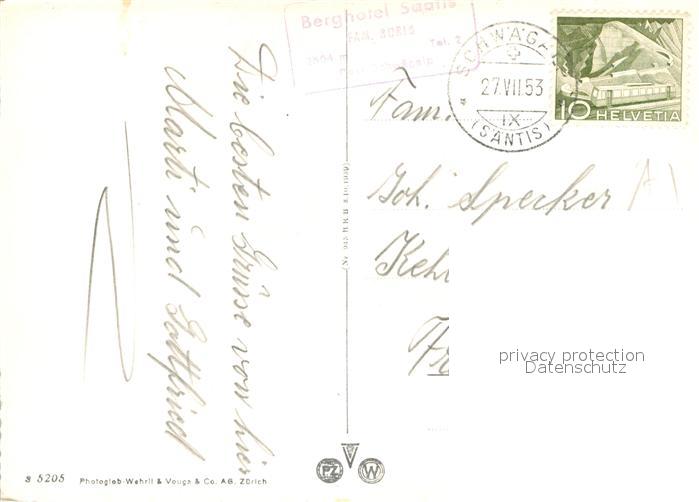 Berghotel Säntis
FAM. 
2504 m Tel. 2
SCHWÄGALP
27.VII.53
IX
(SÄNTIS)
10 HELVETIA
Die besten Grüsse von hier
Marti und Gottfried
Fam.
Joh. Specker
Keh
Fr
A1
(Nr. 945 B.R.B. 8.10.1939)
privacy protection
Datenschutz
PZ
W
S 5205 Photoglob-Wehrli & Vouga & Co. AG. Zürich